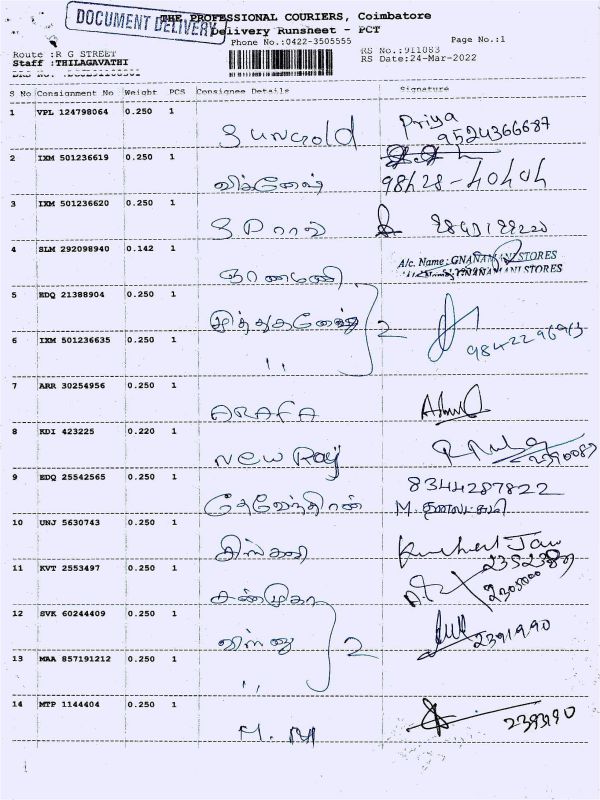 DOCUMENT DELIVERY
THE PROFESSIONAL COURIERS, Coimbatore
Delivery Runsheet - PCT
Phone No.:0422-3505555 Page No.:1
Route :R G STREET RS No.:911083
Staff :THILAGAVATHI RS Date:24-Mar-2022
S No Consignment No Weight PCS Consignee Details Signature
1 VPL 124798064 0.250 1
Sungold Priya 9524366687
2 IXM 501236619 0.250 1
விக்னேஷ் 98428-40404
3 IXM 501236620 0.250 1
S பாரஸ்
4 SLM 292098940 0.142 1
ஞானமணி A/c. Name: GNANAMANI STORES
5 EDQ 21388904 0.250 1
2
6 IXM 501236635 0.250 1
,, 9842296913
7 ARR 30254956 0.250 1
ARAFA
8 KDI 423225 0.220 1
New Raj 2390087
9 EDQ 25542565 0.250 1
தேவேந்திரன் 8344287822
10 UNJ 5630743 0.250 1
11 KVT 2553497 0.250 1
சண்முகா 2305000
12 SVK 60244409 0.250 1
விஷ்னு 2 2391990
13 MAA 857191212 0.250 1
,,
14 MTP 1144404 0.250 1
H. M